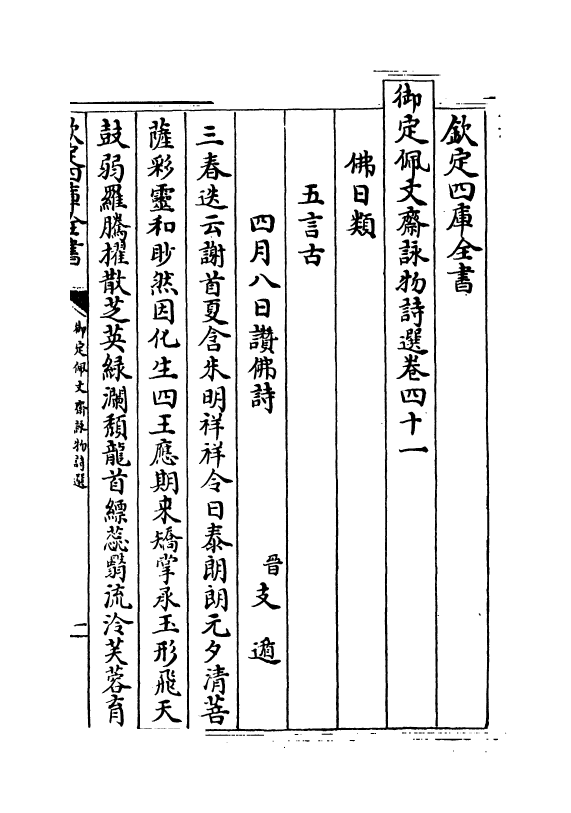 欽定四庫全書
御定佩文齋詠物詩選卷四十一
佛日類
五言古
四月八日讚佛詩
晉支遁
三春迭云謝首夏含朱明祥祥令日泰朗朗元夕清菩
薩彩靈和眇然因化生四王應期来矯掌承玉形飛天
鼓弱羅騰擢散芝英緑瀾頹龍首縹蕊翳流泠芙蓉育
欽定四庫全書
御定佩文齋詠物詩選
二